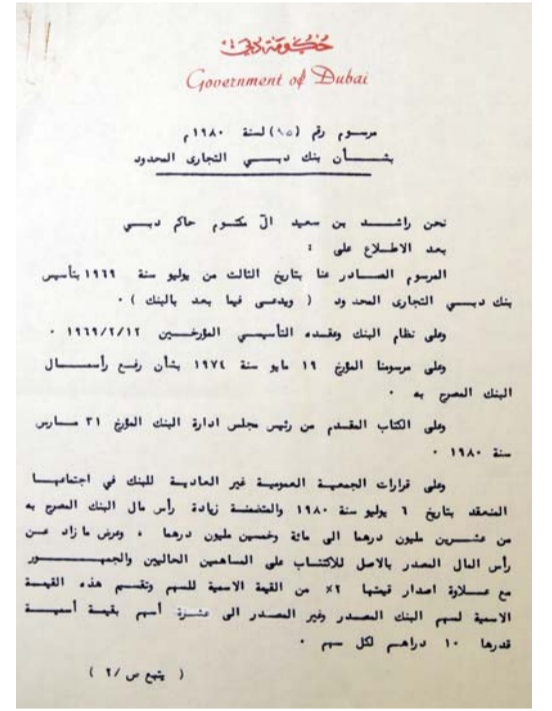 حكومة دبي
Government of Dubai
مرسوم رقم (١٥) لسنة ١٩٨٠م
بشأن بنك دبي التجارى المحدود
نحن راشد بن سعيد آل مكتوم حاكم دبي
بعد الاطلاع على :
المرسوم الصادر عنا بتاريخ الثالث من يوليو سنة ١٩٦٩ بتأسيس
بنك دبي التجارى المحدود ( ويدعى فيما بعد بالبنك ) ٠
وعلى نظام البنك وعقده التأسيسي المؤرخين ١٩٦٩/٢/١٢ ٠
وعلى مرسومنا المؤرخ ١٩ مايو سنة ١٩٧٤ بشأن رفع رأسمال
البنك المصرح به ٠
وعلى الكتاب المقدم من رئيس مجلس ادارة البنك المؤرخ ٣١ مارس
سنة ١٩٨٠ ٠
وعلى قرارات الجمعية العمومية غير العادية للبنك في اجتماعها
المنعقد بتاريخ ٦ يوليو سنة ١٩٨٠ والمتضمنة زيادة رأس مال البنك المصرح به
من عشرين مليون درهما الى مائة وخمسين مليون درهما ، وعرض ما زاد عن
رأس المال المصدر بالاصل للاكتتاب على المساهمين الحاليين والجمهور
مع علاوة اصدار قيمتها ٢٪ من القيمة الاسمية للسهم وتقسم هذه القيمة
الاسمية لسهم البنك المصدر وغير المصدر الى عشرة أسهم بقيمة أسمية
قدرها ١٠ دراهم لكل سهم ٠
( يتبع ص /٢ )